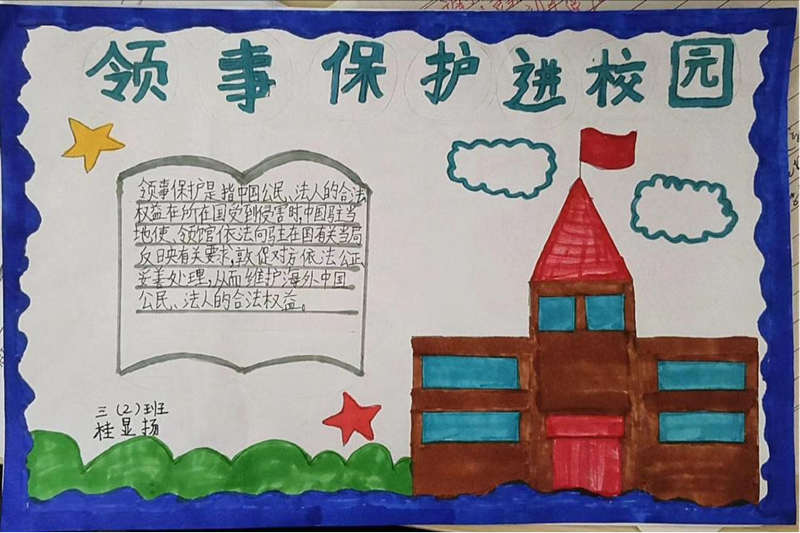 领事保护进校园
领事保护是指中国公民、法人的合法
权益在所在国受到侵害时中国驻当
地使、领馆依法向驻在国有关当局
反映有关要求,敦促对方依法公正、
妥善处理,从而维护海外中国
公民、法人的合法权益。
三(2)班
桂显扬